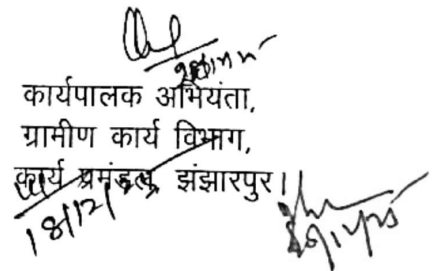 कार्यपालक अभियंता,
ग्रामीण कार्य विभाग,
कार्य प्रमंडल, झंझारपुर।।
18/12/